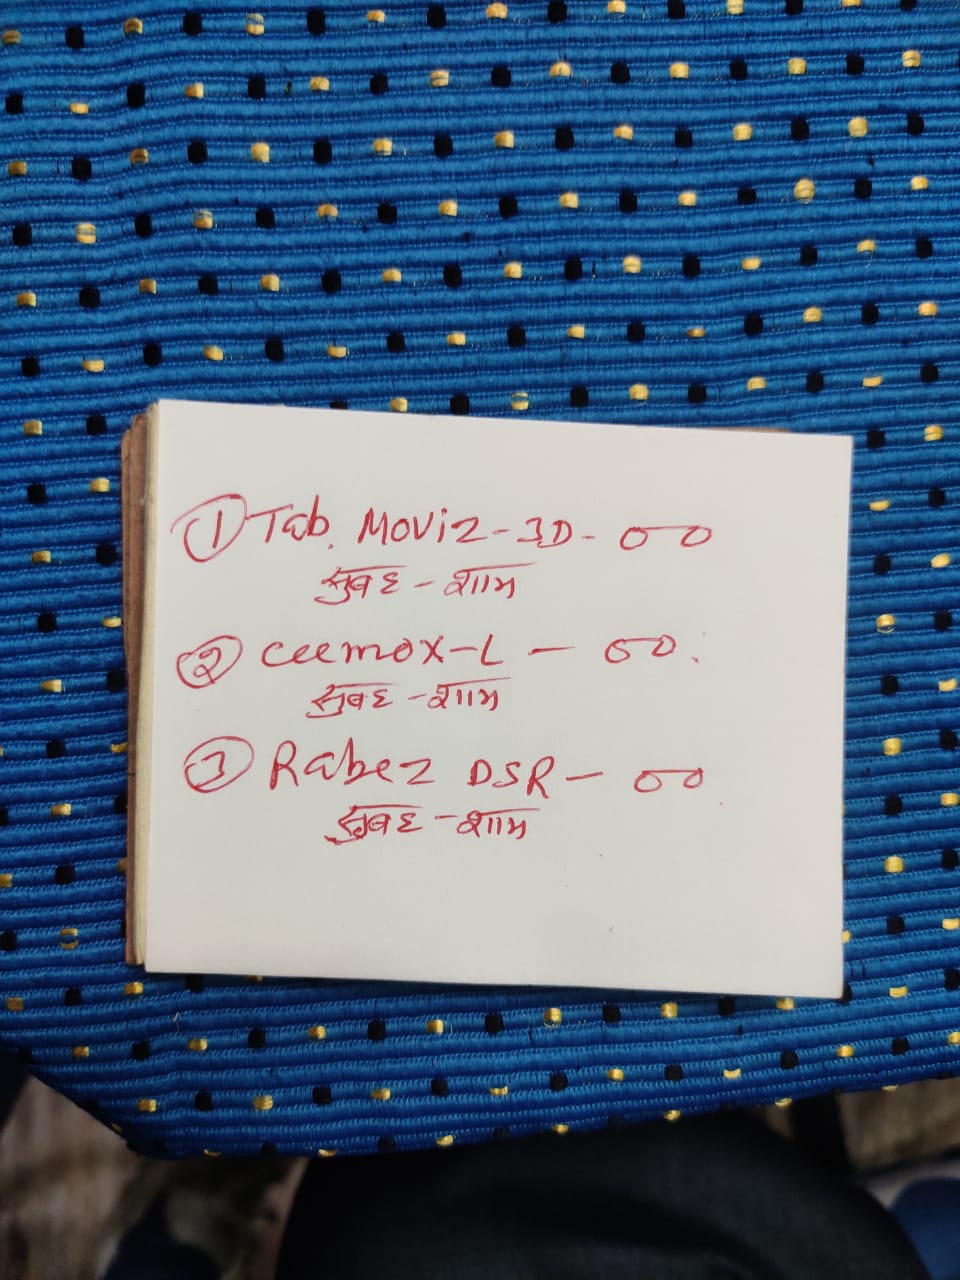 ① Tab. Moviz-3D- 00
सुबह - शाम
② ceemox-L - 00.
सुबह - शाम
③ Rabez DSR - 00
सुबह - शाम